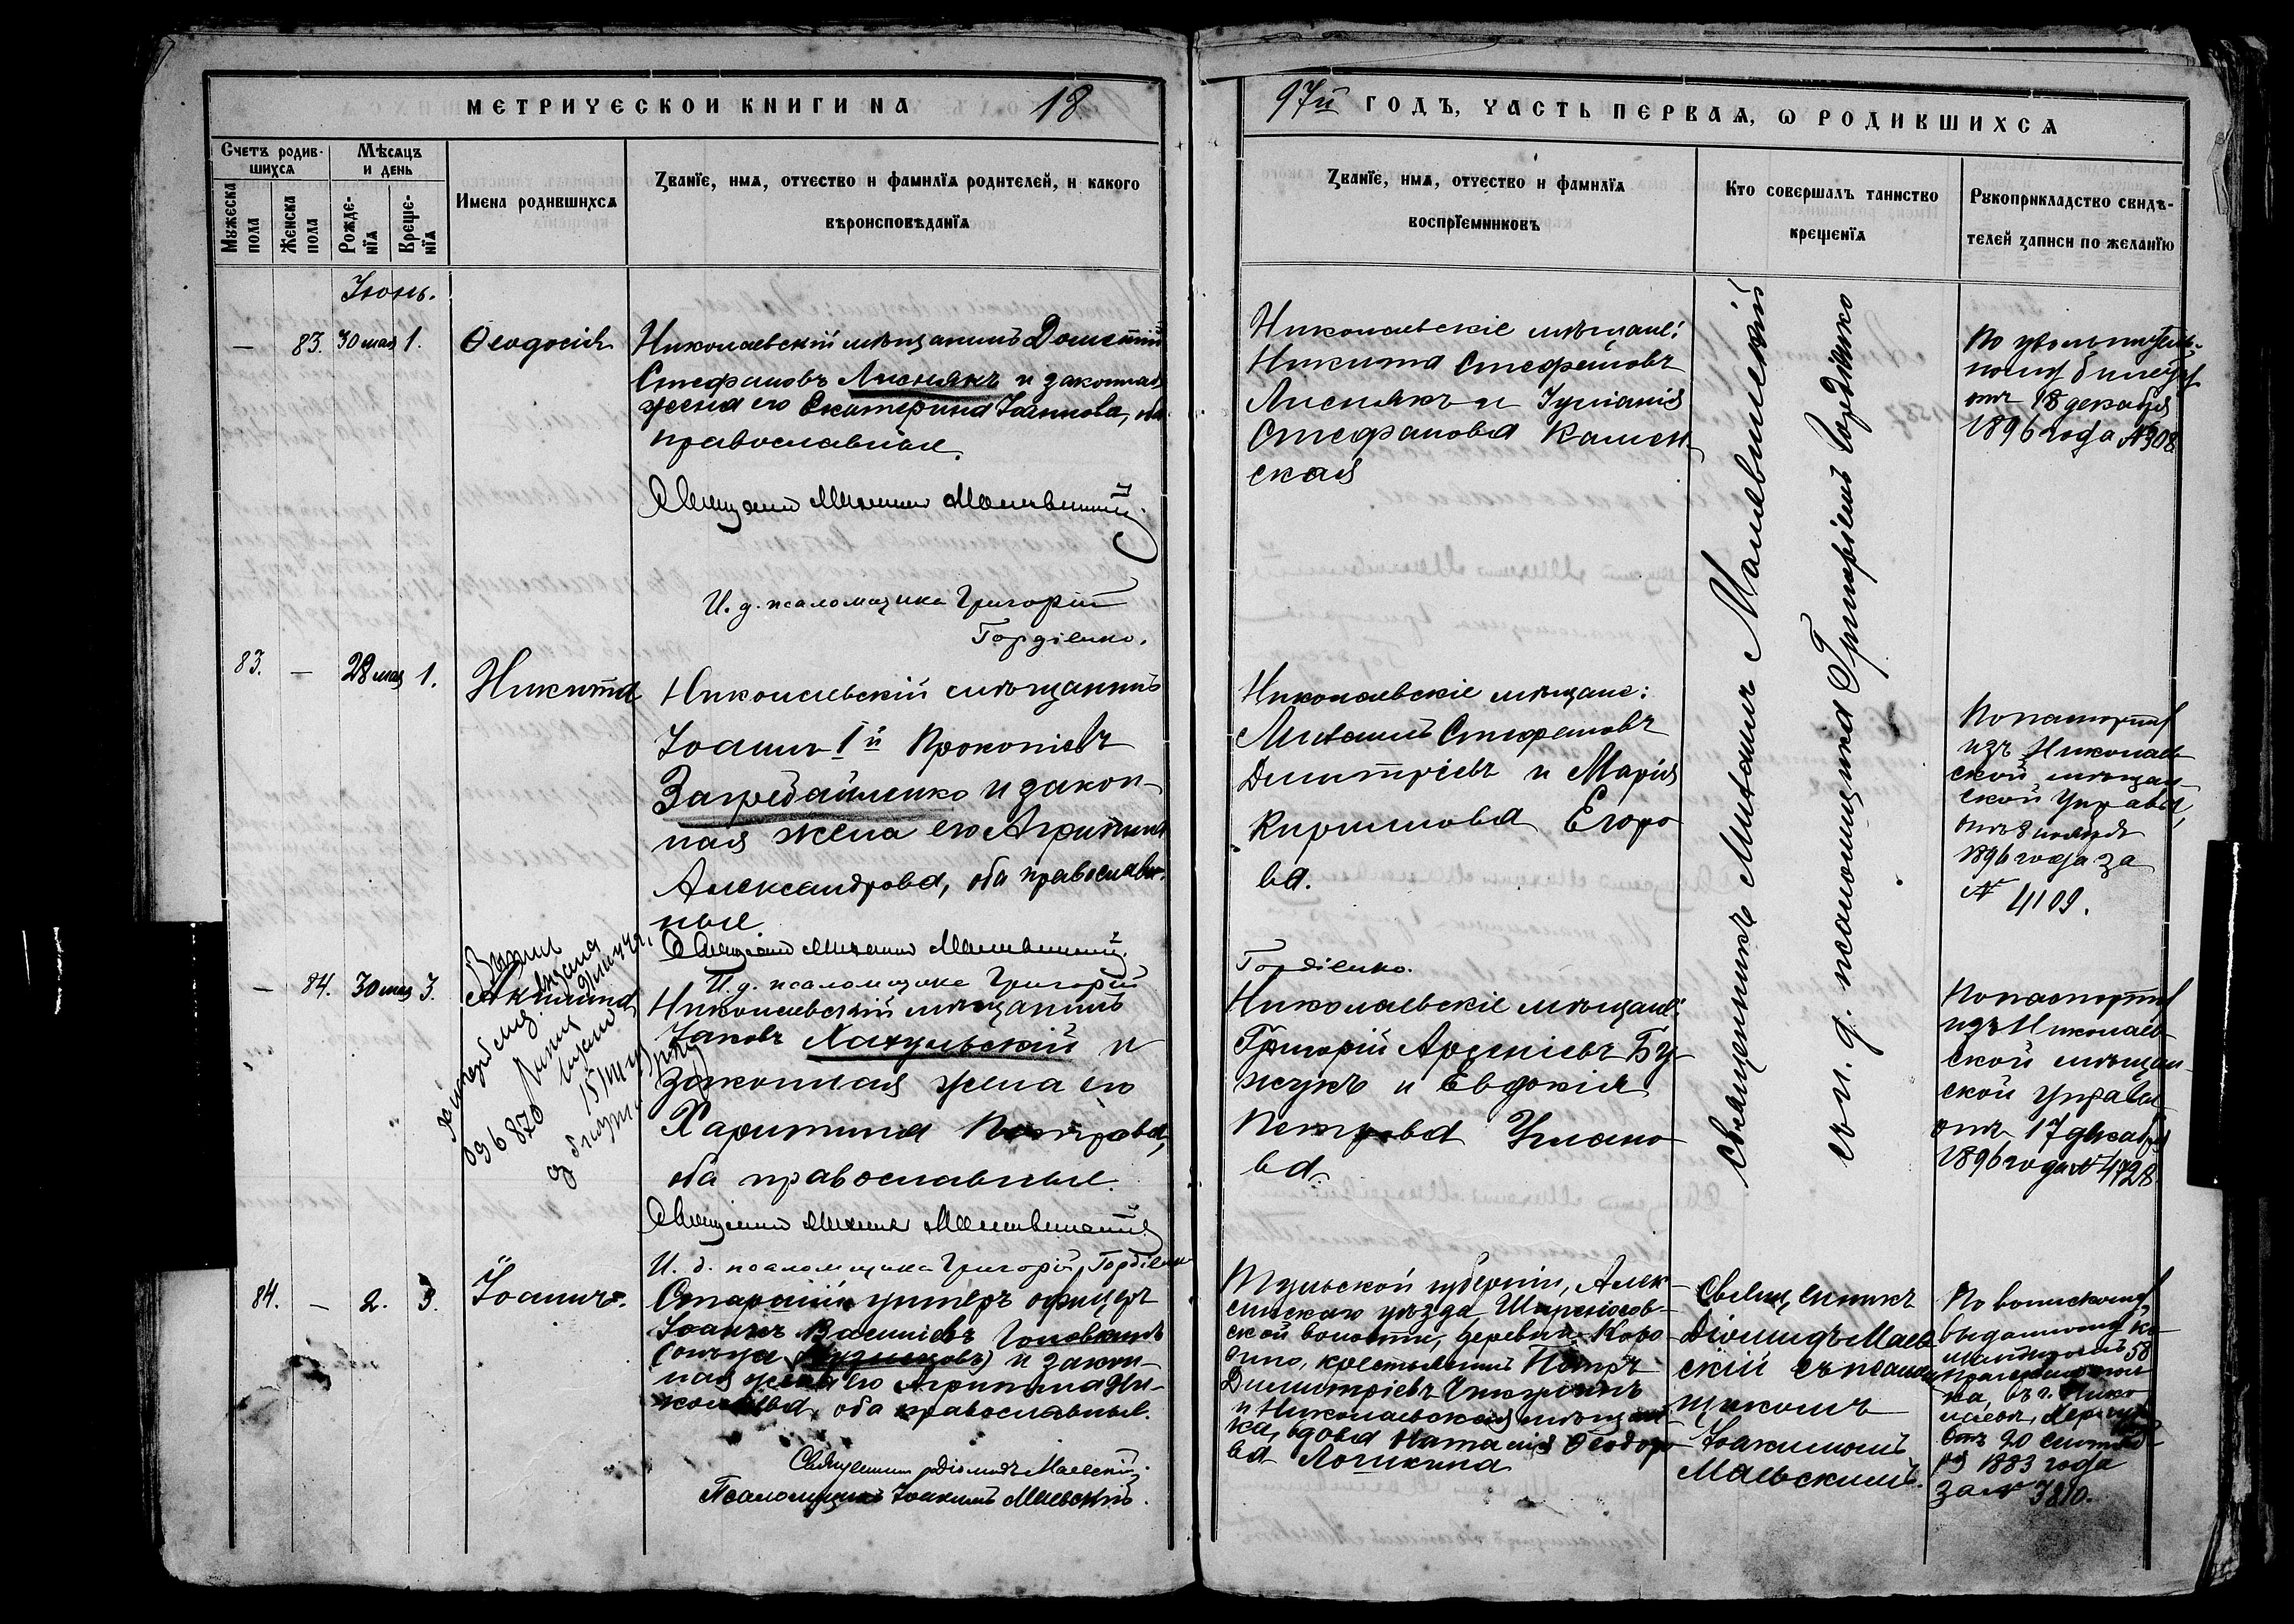 МЕТРИЧЕСКОЙ КНИГИ НА 18
97й ГОДЪ, ЧАСТЬ ПЕРВАЯ, Ѡ РОДИВШИХСЯ
Счетъ родив-
шихся
Мужеска
пола
Женска
пола
Мѣсяцъ
и день
Рожде-
нія
Креще-
нія
Имена родившихся
Званїе, имя, отчество и фамилїя родителей, и какого
вѣроисповѣданїя
Званїе, имя, отчество и фамилїя
воспрїемниковъ
Кто совершалъ таинство
крещенїя
Рукоприкладство свидѣ-
телей записи по желанїю
Іюнь.
— 83. 30 мая 1. Ѳеодосія
Николаевскій мѣщанинъ Дометій
Стефановъ Лиснякъ и законная
жена его Екатерина Іоаннова, оба
православные.
Священникъ Михаилъ
И. д. псаломщика Григорій
Гордіенко.
Николаевскіе мѣщане:
Никита Стефановъ
Лиснякъ и Іуліанія
Стефанова Камен-
ская
По увольнитель-
ному билету
отъ 18 декабря
1896 года №308
Священникъ Михаилъ
съ и. д. псаломщика Григоріемъ Гордіенко
83. — 28 мая 1. Никита
Николаевскій мѣщанинъ
Іоаннъ 1й Прокопіевъ
и закон-
ная жена его Агрипина
Александрова, оба православ-
ные
Священникъ Михаилъ
И. д. псаломщика Григорій
Гордіенко.
Николаевскіе мѣщане:
Михаилъ Стефановъ
Димитріевъ и Марія
Кириллова Егоро-
ва.
По паспорту
изъ Николаев-
ской мѣщан-
ской Управы,
отъ 8 ноября
1896 года за
№ 4109.
— 84. 30 мая 3. Акилина
Николаевскій мѣщанинъ
Іаковъ Хахульскій и
законная жена его
Харитина Петрова,
оба православные.
Священникъ Михаилъ
И. д. псаломщика Григорій Гордіенко
Николаевскіе мѣщане:
Григорій Арсеніевъ Бу-
жукъ и Евдокія
Петрова Улано-
ва.
По паспорту
изъ Николаев-
ской мѣщан-
ской Управы
отъ 17 декабря
1896 года № 4728.
84. — 2. 3. Іоаннъ.
Старшій унтеръ офицеръ
Іоаннъ Василіевъ
и закон-
ная жена его Агрипина Ни-
колаева, оба православные.
Священникъ Діомидъ Маевскій.
Псаломщикъ Іоакимъ Маевскій.
Тульской губерніи, Алек-
синскаго уѣзда
ской волости, деревни Коро-
вино, крестьянинъ Петръ
Димитріевъ
и Николаевская мѣщан-
ка, вдова Наталія Ѳеодоро-
ва Логикина
Священникъ
Діомидъ Маев-
скій съ псалом-
щикомъ
Іоакимомъ
Маевскимъ.
По воинскому,
выданному ко-
мандиромъ 58
ка, въ г. Нико-
лаевѣ, Херс. губ.
отъ 20 сентяб-
ря 1883 года
за № 3810.